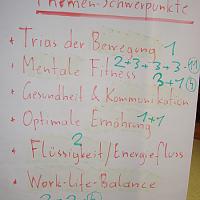 Themen-Schwerpunkte
* Trias der Bewegung 1
2+3+3+3=11
* Mentale Fitness
3+1 4
* Gesundheit & Kommunikation
* Optimale Ernährung 1+1
2
* Flüssigkeit/Energiefluss
* Work-Life-Balance